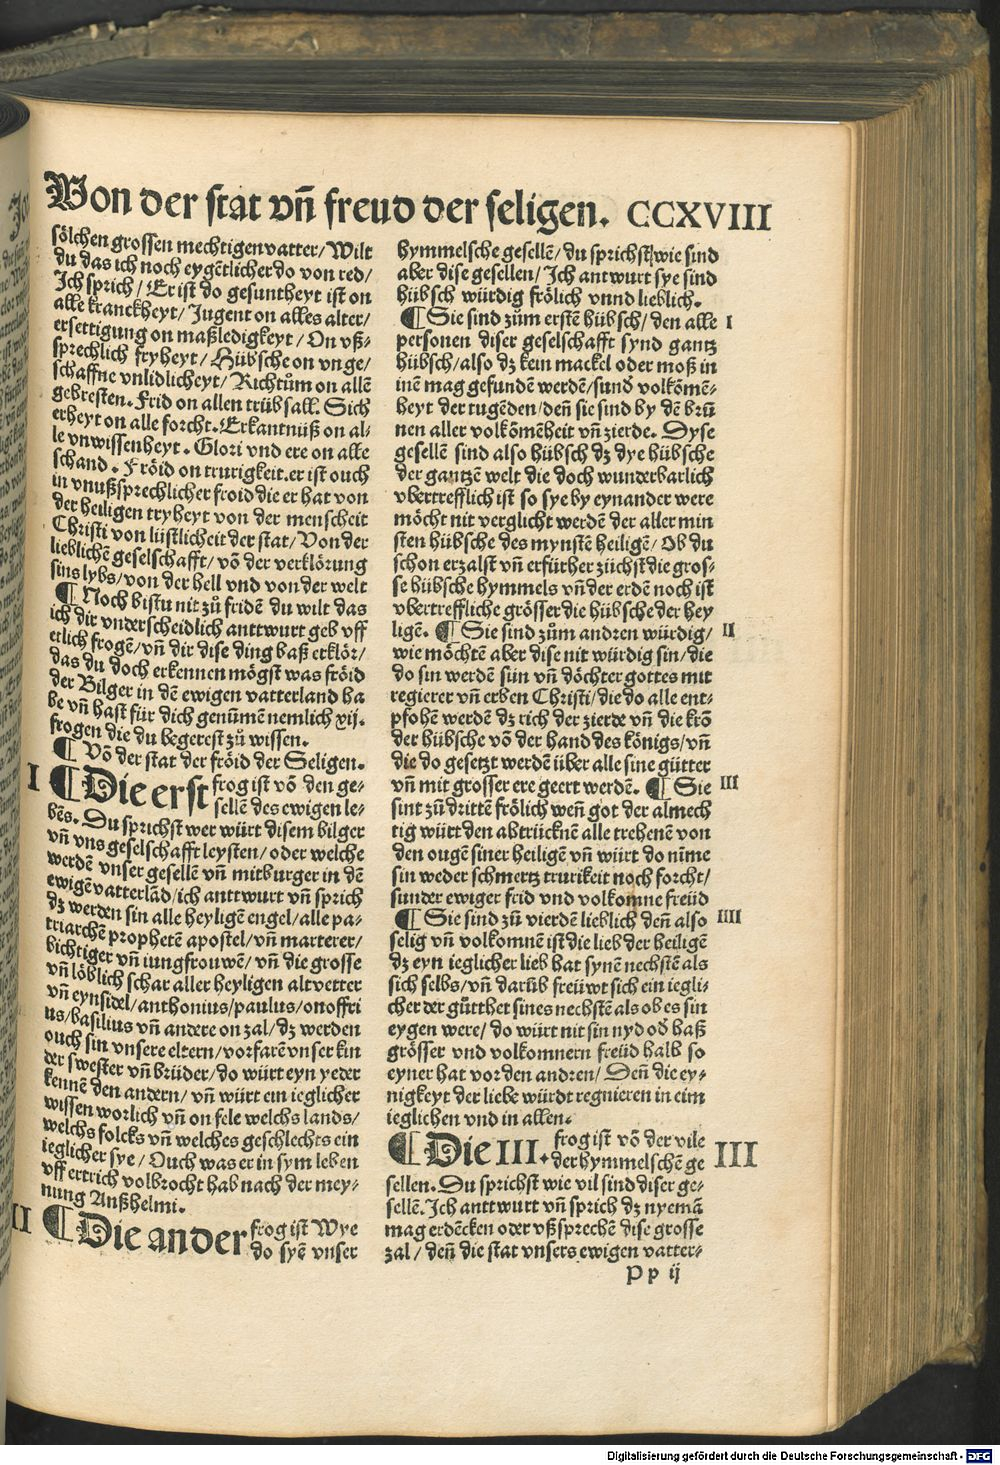 Von der stat vñ freud der seligen. CCXVIII
sölchen grossen mechtigen vatter/Wilt
du das ich noch eygẽtlicher do von red/
Ich sprich/Er ist do gesuntheyt ist on
alle kranckheyt/Jugent on alles alter/
ersettigung on maßledigkeyt/On vß-
sprechlich fryheyt/Hübsche on vnge/
schaffne vnlidlicheyt/Richtům on allẽ
gebresten. Frid on allen trübsall. Sich
erheyt on alle forcht. Erkantnüß on al-
le vnwissenheyt. Glori vnd ere on alle
schand. Fröid on trurigkeit. er ist ouch
in vnußsprechlicher froid die er hat von
der heiligen tryheyt von der menscheit
Christi von lüstlicheit der stat/Von der
lieblichẽ geselschafft/võ der verklörung
sins lybs/von der hell vnd von der welt
¶ Noch bistu nit zů fridẽ du wilt das
ich dir vnderscheidlich anttwurt geb vff
etlich frogẽ/vñ dir dise ding baß erklör/
das du doch erkennen mögst was fröid
der Bilger in dẽ ewigen vatterland ha
be vñ hast für dich genũmẽ nemlich xij.
frogen die du begerest zů wissen.
¶ Võ der stat der fröid der Seligen.
I ¶ Die erst frog ist võ den ge-
sellẽ des ewigen le-
bẽs. Du sprichst wer würt disem bilger
vñ vns geselschafft leysten/oder welche
werdẽ vnser gesellẽ vñ mitburger in dẽ
ewigẽ vatterlãd/ich anttwurt vñ sprich
dz werden sin alle heyligẽ engel/alle pa-
triarchẽ prophetẽ apostel/vñ marterer/
bichtiger vñ iungfrouwẽ/vñ die grosse
vñ löblich schar aller heyligen altvetter
vñ eynsidel/anthonius/paulus/onoffri
us/basilius vñ andere on zal/dz werden
ouch sin vnsere eltern/vorfarẽ vnser kin
der swester vñ brüder/do würt eyn yeder
kennẽ den andern/vñ würt ein ieglicher
wissen worlich vñ on fele welchs lands/
welchs folcks vñ welches geschlechts ein
ieglicher sye/Ouch was er in sym leben
vff ertrich volbrocht hab nach der mey-
nung Anßhelmi.
II ¶ Die ander frog ist Wye
do syẽ vnser
hymmelsche gesellẽ/du sprichst/wie sind
aber dise gesellen/Ich antwurt sye sind
hübsch würdig frölich vnnd lieblich.
¶ Sie sind zům erstẽ hübsch/den alle I
personen diser geselschafft synd gantz
hübsch/also dz kein mackel oder moß in
inẽ mag gefundẽ werdẽ/sund volkõmẽ-
heyt der tugẽden/deñ sie sind by dẽ brũ
nen aller volkõmẽheit vñ zierde. Dyse
gesellẽ sind also hübsch dz dye hübsche
der gantzẽ welt die doch wunderbarlich
vbertrefflich ist so sye by eynander were
möcht nit verglicht werdẽ der aller min
sten hübsche des mynstẽ heiligẽ/Ob du
schon erzalst vñ erfürher züchst die gros-
se hübsche hymmels vñ der erdẽ noch ist
vbertreffliche grösser die hübsche der hey
ligẽ. ¶ Sie sind zům andren würdig/ II
wie möchtẽ aber dise nit würdig sin/die
do sin werdẽ sün vñ döchter gottes mit
regierer vñ erben Christi/die do alle ent-
pfohẽ werdẽ dz rich der zierde vñ die krõ
der hübsche võ der hand des königs/vñ
die do gesetzt werdẽ über alle sine gütter
vñ mit grosser ere geert werdẽ. ¶ Sie III
sint zũ dritten frölich weñ got der almech
tig würt den abtrücknẽ alle trehenẽ von
den ougẽ siner heiligẽ vñ würt do nĩme
sin weder schmertz trurikeit noch forcht/
sunder ewiger frid vnd volkomne freüd
¶ Sie sind zũ vierdẽ lieblich deñ also IIII
selig vñ volkomnẽ ist die lieb der heiligẽ
dz eyn ieglicher lieb hat synẽ nechstẽ als
sich selbs/vñ darüb freüwt sich ein iegli-
cher der gütthet sines nechstẽ als ob es sin
eygen were/do würt nit sin nyd oď haß
grösser vnd volkomnern freüd halb so
eyner hat vor den andren/Deñ die ey-
nigkeyt der liebe würdt regnieren in eim
ieglichen vnd in allen.
¶ Die III. frog ist võ der vile III
der hymmelschẽ ge
sellen. Du sprichst wie vil sind diser ge-
sellẽ. Ich anttwurt vñ sprich dz nyemã
mag erdẽcken oder vßsprechẽ dise grosse
zal/deñ die stat vnsers ewigen vatter-
Pp ij
Digitalisierung gefördert durch die Deutsche Forschungsgemeinschaft - DFG